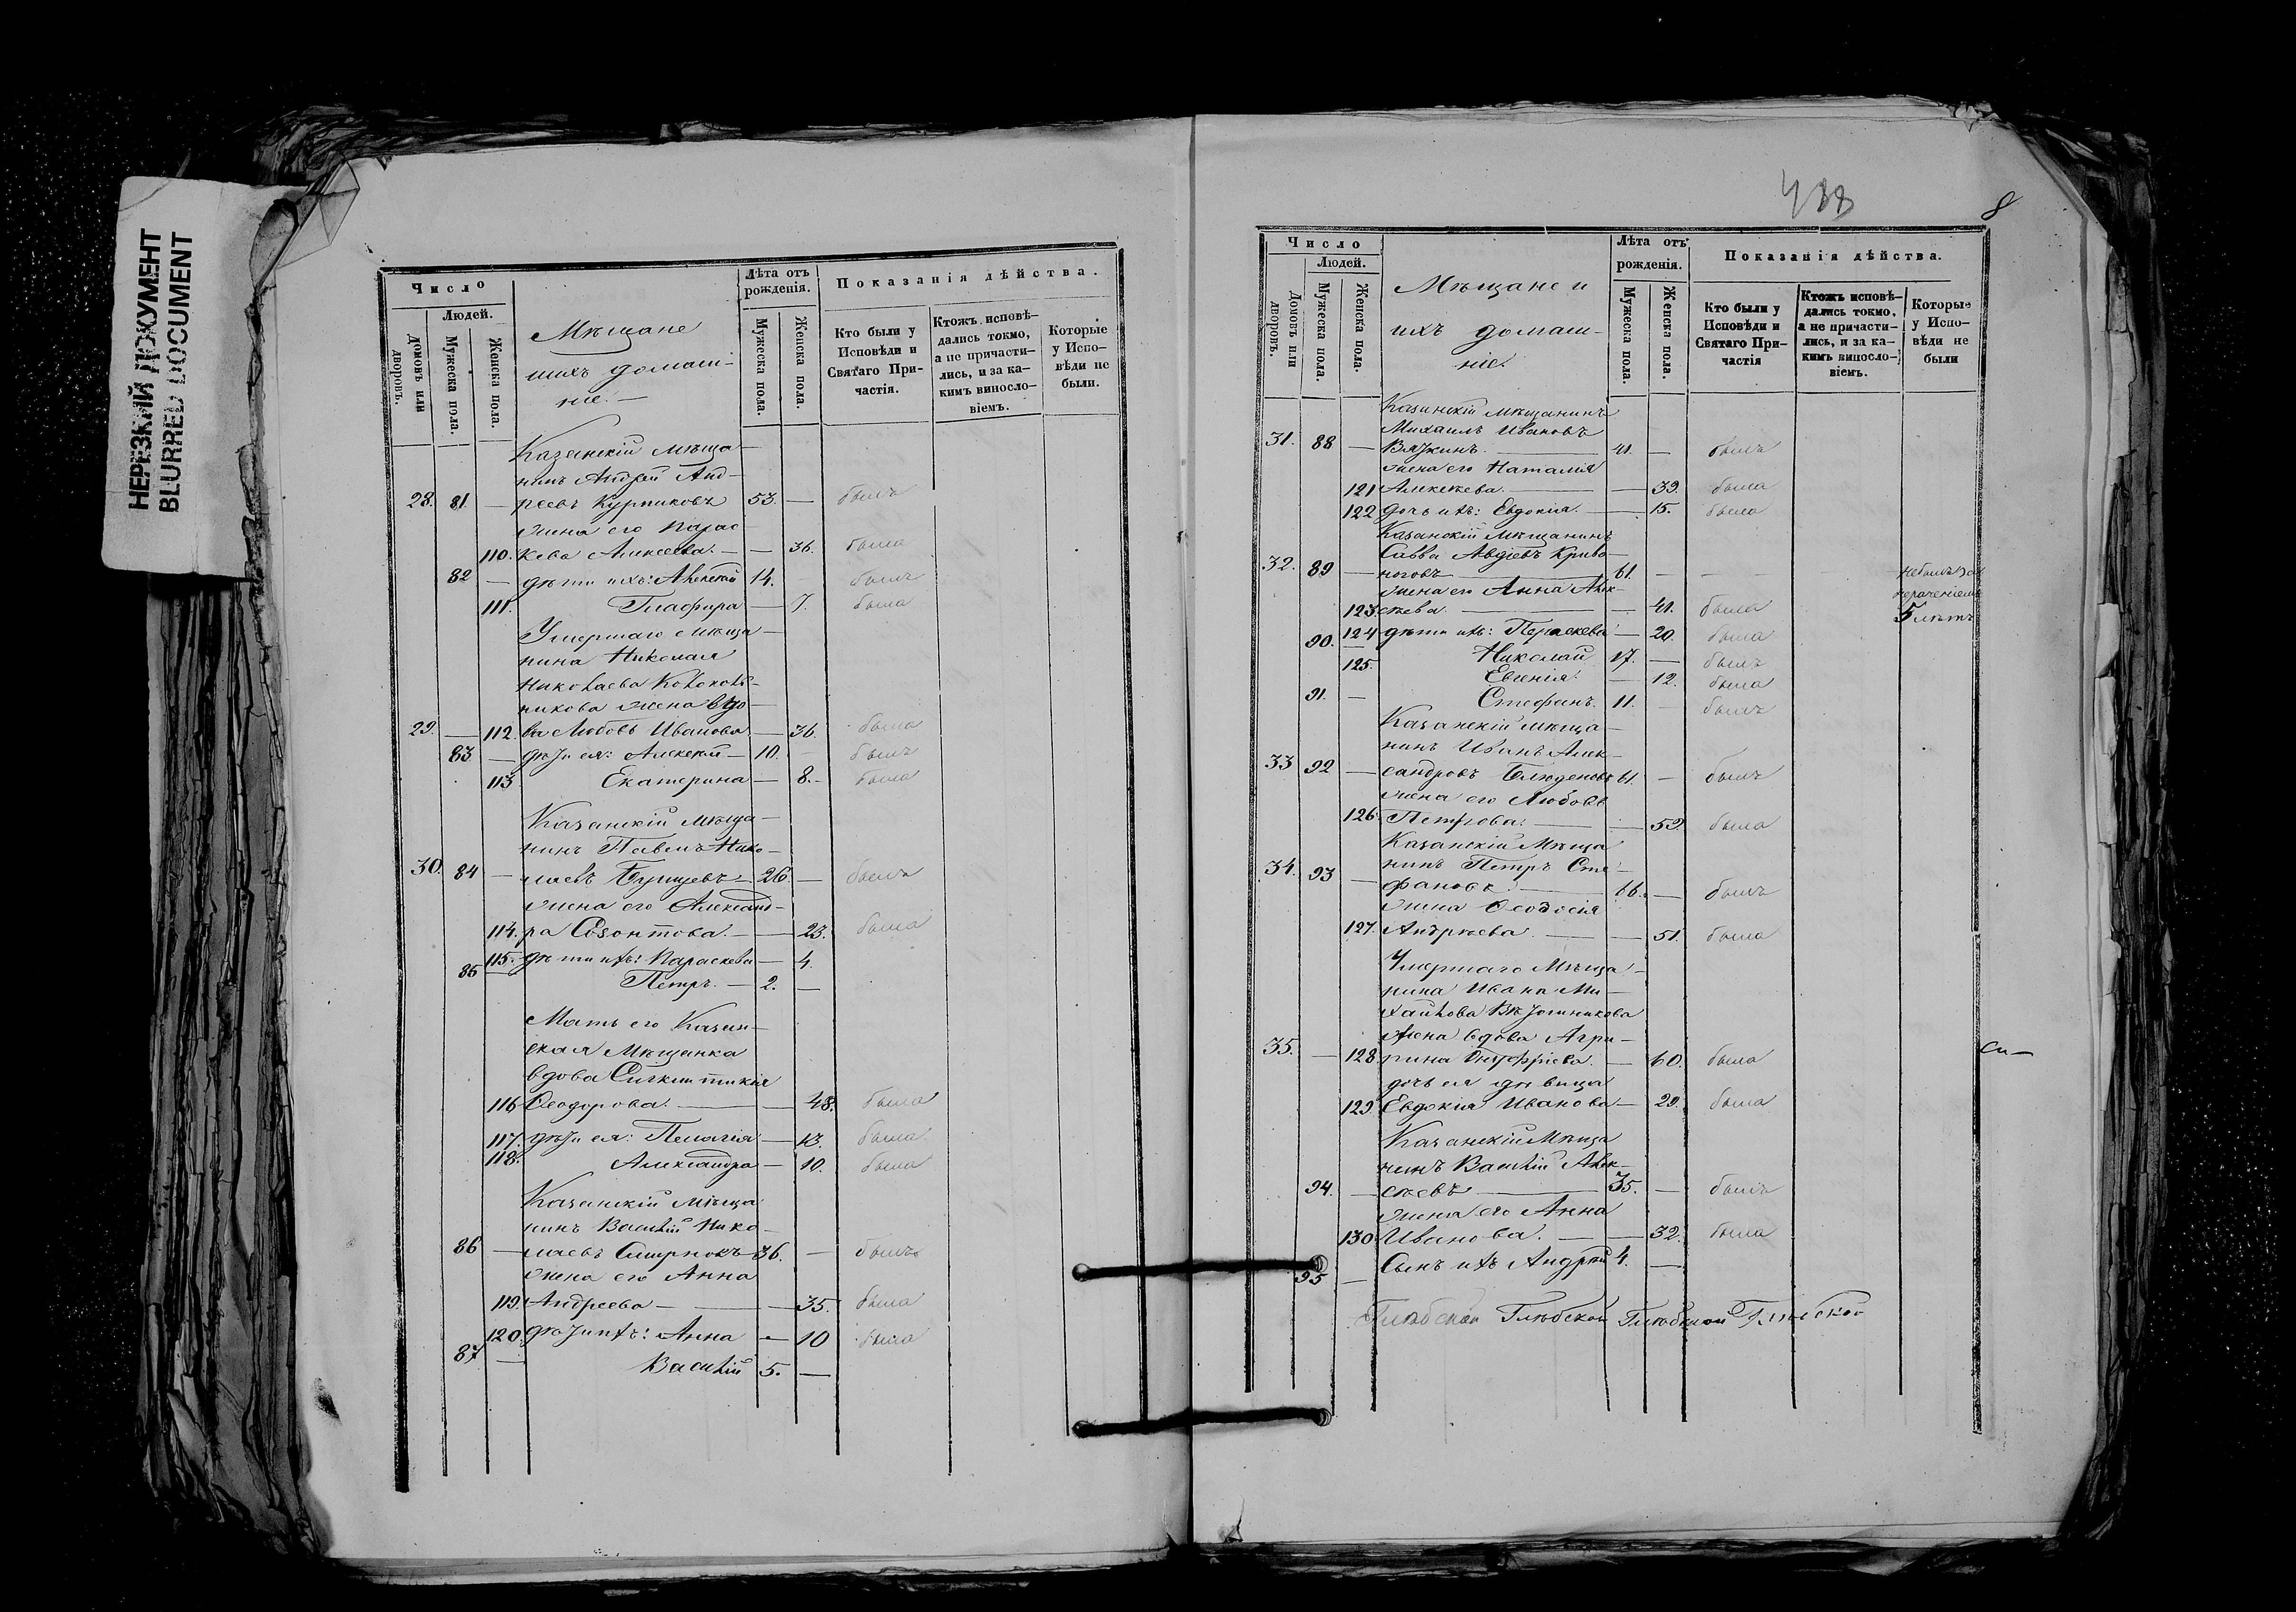 НЕРЕЗКИЙ ДОКУМЕНТ
BLURRED DOCUMENT
Число
Людей.
Домовъ или дворовъ.
Мужеска пола.
Женска пола.
Мѣщане
ихъ домаш-
ніе.
Лѣта отъ рожденія.
Мужеска пола.
Женска пола.
Показанія дѣйства.
Кто были у Исповѣди и Святаго При-частія.
Ктожъ исповѣ-дались токмо, а не причасти-лись, и за ка-кимъ винословіемъ.
Которые у Испо-вѣди не были.
Казанскій мѣща-
нинъ Андрей Анд-
28. 81 — реевъ Курпиковъ 53. — былъ
жена его Парас
110. кева Алексеева. — — 36. была
82 — дѣти ихъ: Алексей 14. — былъ
111. Глафира — 7. была
Умершаго мѣща-
нина Николая
Николаева Колоколь-
никова жена вдо-
29. — 112. ва Любовь Иванова — 36. была
83 — дѣти ея: Алексей — 10. — былъ
113 Екатерина — 8. — была
Казанскій мѣща-
нинъ Павелъ Нико-
30. 84 — лаевъ 26. — былъ
жена его Александ-
114. ра Созонтова. — — 23. была
115. дѣти ихъ: Параскева — 4.
85 — Петръ. — 2. —
Мать его Казан-
ская Мѣщанка
вдова
116 Ѳеодорова. — — 48. была
117. дѣти ея: Пелагія — 13. была
118. Александра — 10. была
Казанскій мѣща
нинъ Василій Нико-
86 — лаевъ Смирновъ 36. — былъ
жена его Анна
119. Андреева — — 35. была
120. дѣти ихъ: Анна — 10 была
87 — Василій 5. —
438
8
Число
Людей.
Домовъ или дворовъ.
Мужеска пола.
Женска пола.
Мѣщане и
ихъ домаш-
ніе.
Лѣта отъ рожденія.
Мужеска пола.
Женска пола.
Показанія дѣйства.
Кто были у Исповѣди и Святаго При-частія
Ктожъ исповѣ-дались токмо, а не причасти-лись, и за ка-кимъ винословіемъ.
Которые у Испо-вѣди не были
Казанскій мѣщанинъ
Михаилъ Ивановъ
31. 88 — Вяткинъ. — 41. — былъ
жена его Наталія
121 Алексѣева. — — 39. была
122 дочь ихъ: Евдокія. — 15. была
Казанскій Мѣщанинъ
Савва Авдіевъ Криво-
32. 89 — ноговъ — 61. — — не былъ за
жена его Анна Алек- нераченіемъ
123 сѣева. — — 41. была 5 лѣтъ
124 дѣти ихъ: Параскева — 20. была
90. — Николай 17. — былъ
125. Евгенія. — 12. была
91. — Стефанъ. 11. — былъ
Казанскій мѣща-
нинъ Иванъ Алек-
33 92 — сандровъ 61. — былъ
жена его Любовь
126. Петрова. — — 52. была
Казанскій Мѣща
нинъ Петръ Сте-
34. 93 — фановъ. — 66. — былъ
жена Ѳеодосія
127. Андрѣева. — — 51. была
Умершаго Мѣща-
нина Ивана Ми-
хайлова
жена вдова Агри-
35. — 128. пина Онуфріева. — 60. была
дочь ея дѣвица
129. Евдокія Иванова — 29. была
Казанскій Мѣща
нинъ Василій Алек-
94. — сѣевъ — 35. — былъ
жена его Анна
130. Иванова. — — 32. была
95 — Сынъ ихъ Андрей 4. —